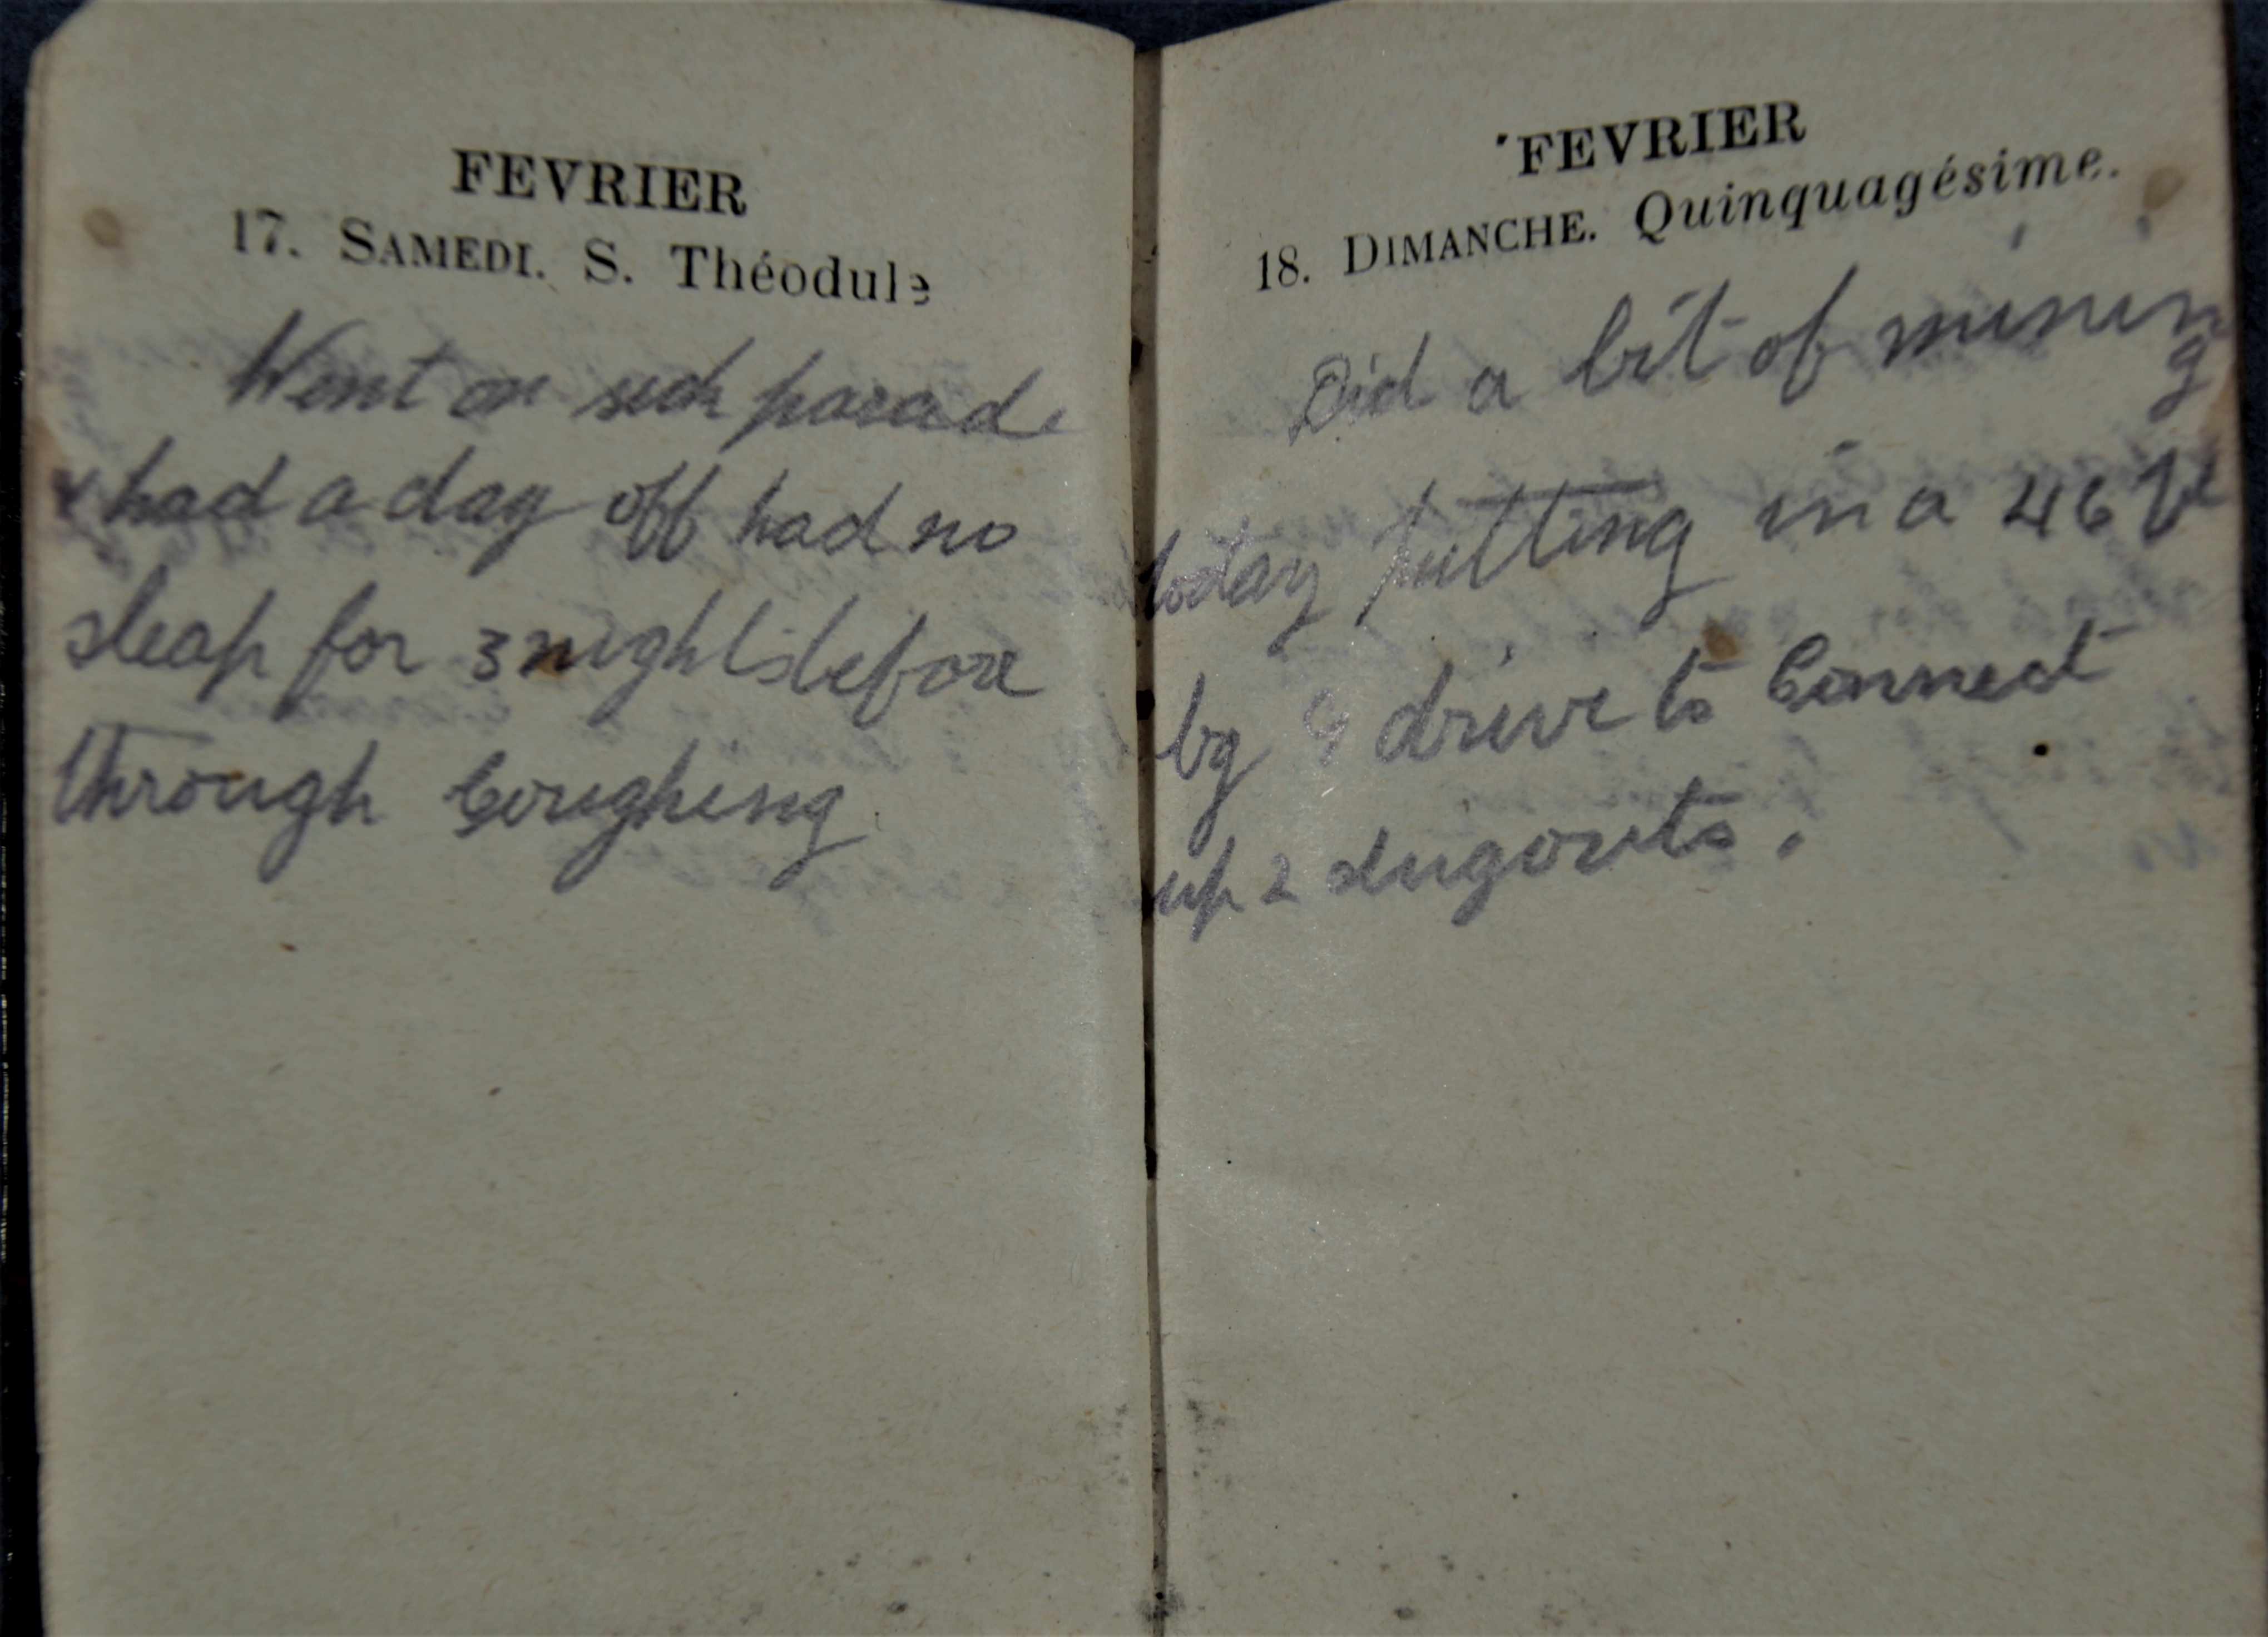 FEVRIER
17. SAMEDI. S. Théodule
Went on sick parade
& had a day off had no
sleap for 3 nights before
through Coughing
FEVRIER
18. DIMANCHE. Quinquagésime.
Did a bit of mining
today putting in a 46
by 4 drive to Connect
up 2 dugouts.